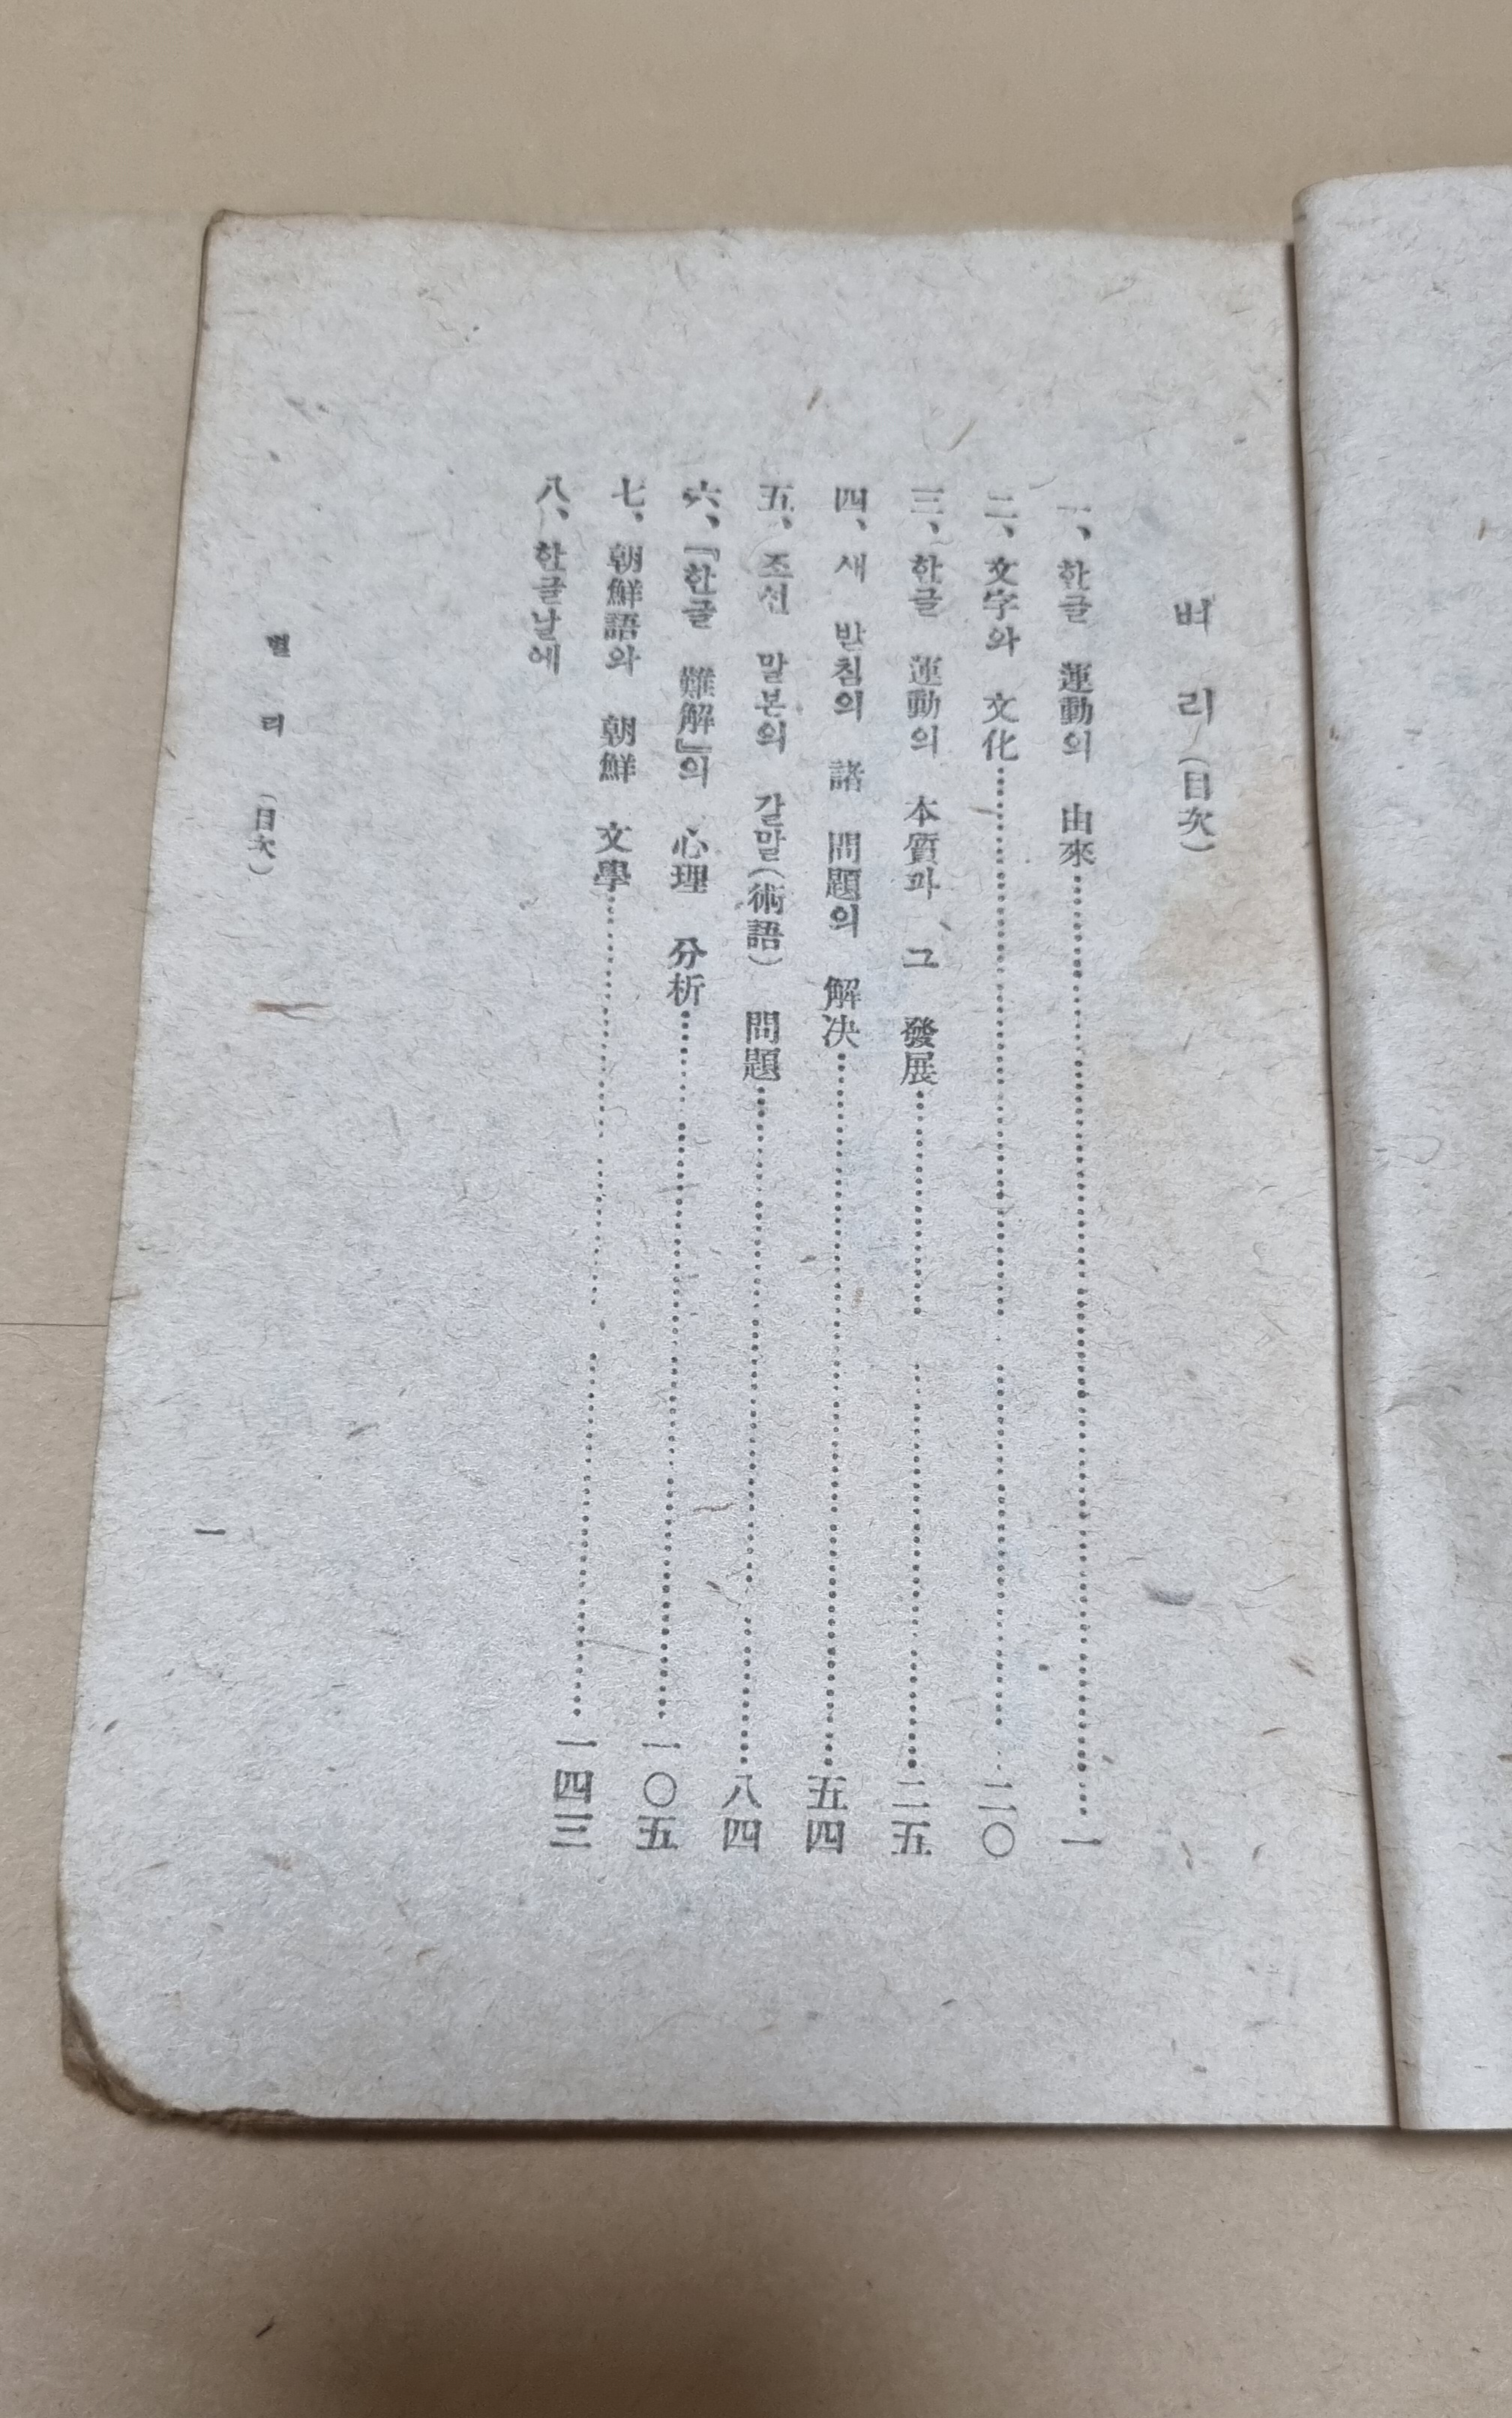 벼리 (目次)
一、 한글 運動의 由來……一
二、 文字와 文化……二〇
三、 한글 運動의 本質과 그 發展……二五
四、 새 받침의 諸 問題의 解決……五四
五、 조선 말본의 갈말(術語) 問題……八四
六、 『한글 難解』의 心理 分析……一〇五
七、 朝鮮語와 朝鮮 文學……一四三
八、 한글날에
벌리 (目次)
一